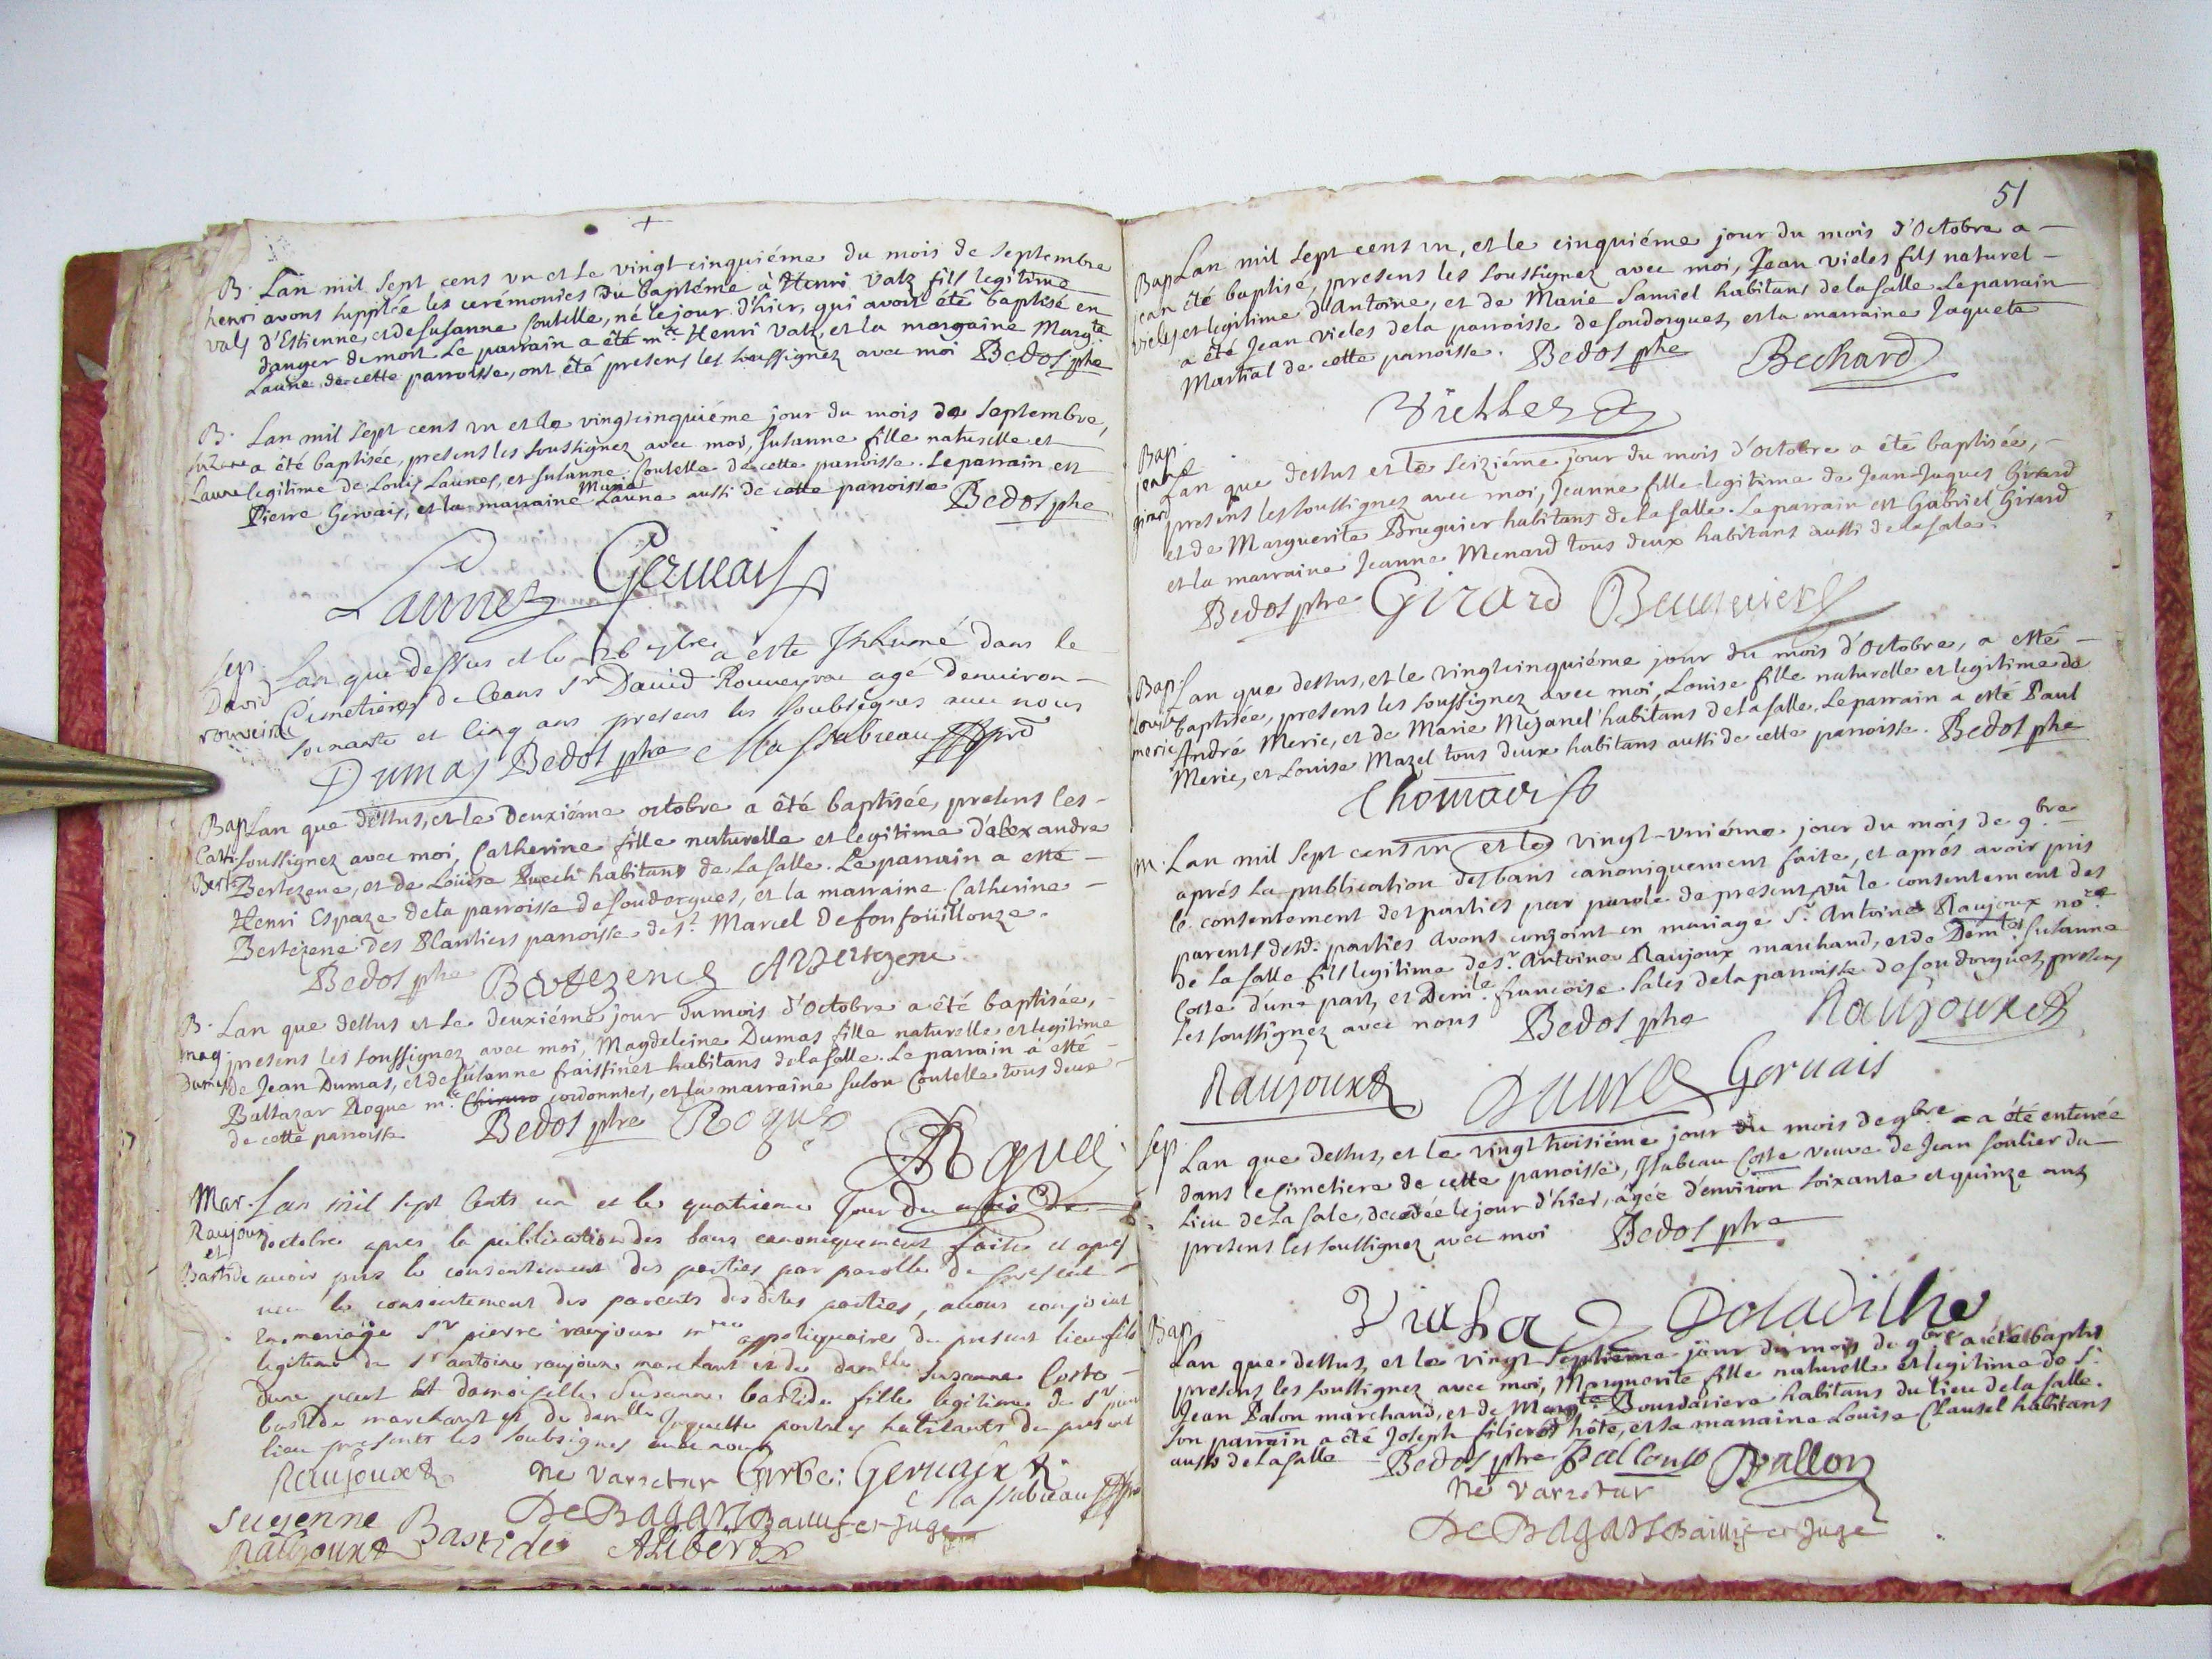 +
B. Lan mil Sept cens vn et Le vingt-cinquiéme du mois de Septembre
henri avons supplée les cerémonies du baptéme à Henri Valz fils legitime
vals d'Estienne, et de Susanne Soutelle, né le jour d'hier, qui avoit été baptisé en
danger de mort. Le parrain a été mre. Henri Valz, et la marraine Margte.
Laune de cette parroisse, ont été presens les soussignez avec moi Bedos ptre
B. Lan mil Sept cens vn et le vingtcinquiéme jour du mois de Septembre,
suzane a été baptisée, presens les soussignez avec moi, Susanne fille naturelle et
Laune legitime de Louis Launes, et Susanne Soutelle de cette parroisse. Le parrain est
Pierre Gervais, et la marraine Marie Laune aussi de cette parroisse Bedos ptre
Launes Gervais
sep. Lan que dessus et le 26 7bre a este Inhumé dans le
David Cimetiere de Ceans Sr David Rouveyrac agé denviron
rouveirac soixante et Cinq ans presens les soubsignes avec nous
Dumas Bedos ptre Massabreau
Bap. Lan que dessus, et le deuxiéme octobre a été baptisée, presens les
Cath. soussignez avec moi, Catherine fille naturelle et legitime d'alexandre
Bert. Bertezene, et de Loüise Puech habitans de La Salle. Le parrain a esté
Henri Espaze de la parroisse de Soudorgues, et la marraine Catherine
Bertezene des Plantiers parroisse de St. Marcel de fonfoüillouze.
Bedos ptre Bertezene ABertezene
B. Lan que dessus et Le deuxiéme jour du mois d'Octobre a été baptisée,
mag. presens les soussignez avec moi, Magdeleine Dumas fille naturelle et legitime
Dumas de Jean Dumas, et de Susanne fraissinet habitans de la Salle. Le parrain a esté
Baltazar Roque me. cordonnier, et la marraine Coutelle tous deux
de cette parroisse Bedos ptre Roque
Roque
Mar. Lan mil sept Cents un et le quatrieme Jour du mois de
Raujoux doctobre apres la publication des bans canoniquement faite et apres
et
Bastide avoir pris le consentement des parties par parolle de present
veu le consentement des parents des dites parties, avons conjoint
En mariage Sr pierre raujoux mre appoticquaire du present lieu fils
legitime de Sr antoine raujoux marchant et de damlle Suzanne Coste
dune part Et damoiselle Suzanne bastide fille legitime de Sr
bastide marchant et de damlle Jaquette habitants du present
lieu presents les soubsignes avec nous
Raujoux Ne Varietur Gervais
Massabreau
De Bagars Baillif et Juge
Suzenne Bastide
Raujoux ALibert
51
Bap. Lan mil sept cens vn, et le cinquiéme jour du mois d'Octobre a
jean été baptisé, presens les soussignez avec moi, Jean vieles fils naturel
vieles et legitime d'Antoine, et de Marie Samiel habitans de la Salle. Le parrain
a été Jean vieles de la parroisse de Soudorgues, et la marraine Jaquete
Martial de cette parroisse. Bedos ptre Bechard
Bap. Lan que dessus et le seiziéme jour du mois d'octobre a été baptisée,
girard presens les soussignez avec moi, Jeanne fille legitime de Jean-Jaques Girard
et de Marguerite Bruguier habitans de la Salle. Le parrain est Gabriel Girard
et la marraine Jeanne Menard tous deux habitans aussi de la Sale.
Bedos ptre Girard
Bap. Lan que dessus, et le vingtcinquiéme jour du mois d'Octobre, a esté
Louise baptisée, presens les soussignez avec moi, Louise fille naturelle et legitime de
meric André Meric, et de Marie Mejanel habitans de la Salle. Le parrain a esté Paul
Meric, et Louise Mazel tous deux habitans aussi de cette parroisse. Bedos ptre
Thomas
m. Lan mil sept cens vn et le vingt-vniéme jour du mois de 9bre
aprés La publication des bans canoniquement faite, et aprés avoir pris
le consentement des parties par parole de present, vû le consentement des
parents desd. parties avons conjoint en mariage Sr. Antoine Raujoux nore
de La Salle fils legitime de Sr. Antoine Raujoux marchand, et de Demlle Susanne
Coste d'une part, et Demle. francoise Sales de la parroisse de Soudorgues, presens
Les soussignez avec nous Bedos ptre Raujoux
Raujoux Gervais
Sep. Lan que dessus, et le vingt troisiéme jour du mois de 9bre a été enterrée
dans le simetiere de cette parroisse, Isabeau Coste veuve de Jean Soulier du
Lieu de La Sale, decedée le jour d'hier, agée d'environ soixante et quinze ans
presens les soussignez avec moi Bedos ptre
Doladilhe
Bap. Lan que dessus, et le vingt-septiéme jour du mois de 9bre a été baptis
presens les soussignez avec moi, Marguerite fille naturelle et legitime de Sr.
Jean Palon marchand, et de Margte. Bourdariere habitans du lieu de la Salle.
Son parrain a été Joseph hôte, et sa marraine Louise Clausel habitans
aussi de la Salle Bedos ptre Pallon
Ne Varietur
De Bagars Baillif et Juge